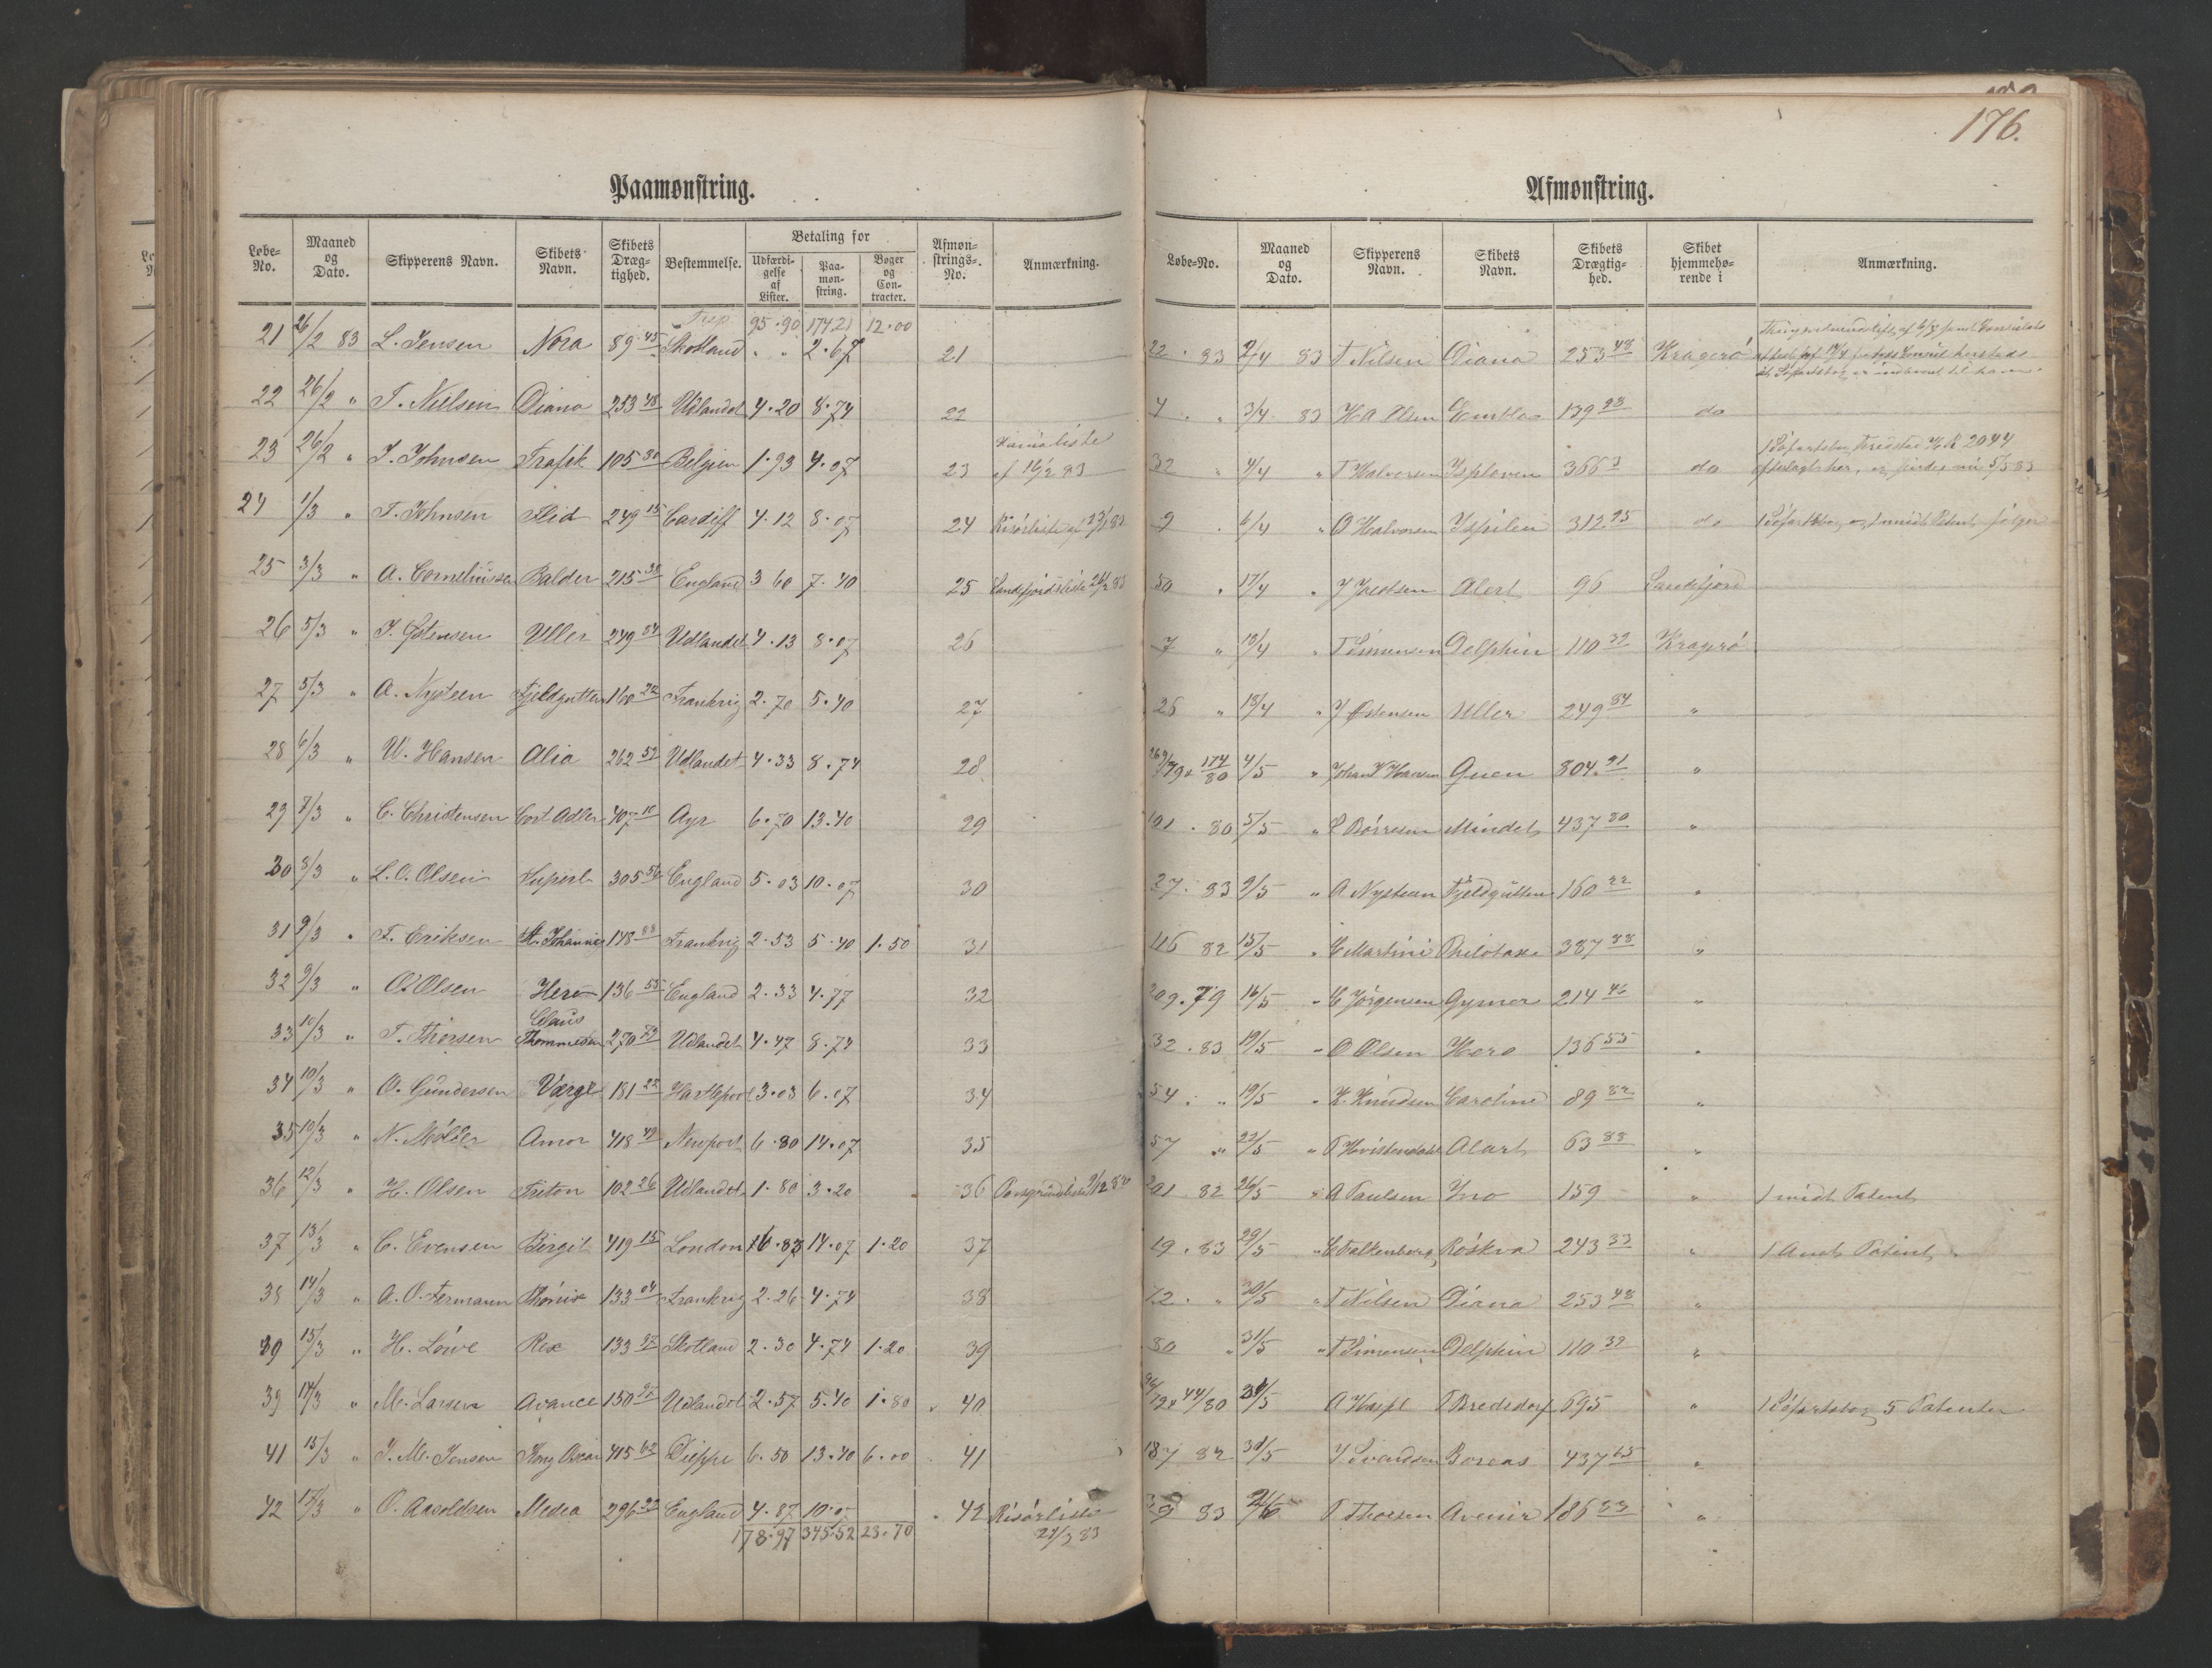 176.
Paamønstring.
Løbe-No. | Maaned og Dato. | Skipperens Navn. | Skibets Navn. | Skibets Dræg-tighed. | Bestemmelse. | Betaling for | Udfærdi-gelse af Lister. | Paa-møn-string. | Bøger og Con-tracter. | Afmøn-strings-No. | Anmærkning.
Trsp 95.90 174.21 12.00
21 26/2 83 L. Jensen Nora 89 45 Skotland " " 2.67 21
22 26/2 " T. Nielsen Diana 253 48 Udlandet 4.20 8.74 22
23 26/2 " J. Johnsen Trafik 105 30 Belgien 1.93 4.07 23 af 16/2 83
24 1/3 " T. Johnsen Flid 249 15 Cardiff 4.12 8.07 24 Risörliste af 83
25 3/3 " A. Corneliussen Balder 215 38 England 3 60 7.40 25 Sandefjordsliste 26/2 83
26 5/3 " J. Östensen Uller 249 84 Udlandet 4.13 8.07 26
27 5/3 " A. Nysteen Fjeldgutten 160 22 Frankrig 2.70 5.40 27
28 6/3 " W. Hansen Alia 262 52 Udlandet 4.33 8.74 28
29 7/3 " C. Christensen Cort Adler 407 10 Ayr 6.70 13.40 29
30 8/3 " L. O. Olsen Superb 305 50 England 5.03 10.07 30
31 9/3 " F. Eriksen St. Johannes 148 88 Frankrig 2.53 5.40 1.50 31
32 9/3 " O. Olsen Hero 136 55 England 2.33 4.77 32
33 10/3 " T. Thorsen Claus Thommesen 270 79 Udlandet 4.47 8.74 33
34 10/3 " O. Gundersen Værge 181 22 Hartlepool 3.03 6.07 34
35 10/3 " N. Möller Amor 418 49 Newport 6.80 14.07 35
36 12/3 " H. Olsen Triton 102 26 Udlandet 1.80 3.20 36 Porsgrundliste
37 13/3 " C. Evensen Birgit 419 15 London 6.87 14.07 1.20 37
38 14/3 " A. O. Fermann Phönix 133 04 Frankrig 2.26 4.74 38
39 15/3 " H. Löwe Rex 133 97 Skotland 2.30 4.74 1.20 39
39 14/3 " M. Larsen Avance 150 97 Udlandet 2.57 5.40 1.80 40
41 15/3 " J. M. Jensen Kong Oscar 415 62 Dieppe 6.50 13.40 6.00 41
42 17/3 " O. Aasoldsen Medea 296 32 England 4.87 10.07 42 Risörliste
178.97 345.52 23.70 21/3 83
Afmønstring.
Løbe-No. | Maaned og Dato. | Skipperens Navn. | Skibets Navn. | Skibets Drægtig-hed. | Skibet hjemmehø-rende i | Anmærkning.
22 . 83 2/4 83 T Nilsen Diana 253 48 Kragerö
4 . " 3/4 83 H A Olsen Emilla 139 28 do
32 " 4/4 " T Halvorsen Isploven 366 3 do 1 Söfartsbog Fredrstad No 2044
9 . 6/4 " O Halvorsen Isfuglen 312.95 do 1 Söfartsbog
50 " 17/4 " J Jacobsen Alert 96 Sandefjord
7 " 18/4 " T Simonsen Delphin 110 39 Kragerö
26 " 18/4 " J Østensen Uller 249 84 "
174/80 4/5 " Johan Hansen Gueen 304.91 "
101 . 80 5/5 " Börresen Mindet 437 80 "
27 . 83 9/5 " A Nysteen Fjeldgutten 160 22 "
116 82 15/5 " C Martini Philotaxe 387 88 "
209.79 16/5 " C Jörgensen Gymer 214 46 "
32 . 83 19/5 " O Olsen Hero 136 55 "
54 . " 19/5 " K. Knudsen Caroline 89 82 "
57 " 22/5 " T Hvistendahl Alart 63 88 "
201 82 26/5 " A Paulsen Ino 159 " 1 midt Patent
19 . 83 29/5 " C Falkenberg Röskva 243 33 " 1 Patent
12 . " 30/5 " T Nilsen Diana 253 48 "
80 " 31/5 " T Simonsen Delphin 110 39 "
44/80 31/5 A T Bredsdorf 695 " 1 Söfartsbog 5 Patenter
187 82 31/5 J Svendsen Boreas 437 65 "
39 83 2/6 T Thorsen Avenir 186 83 "